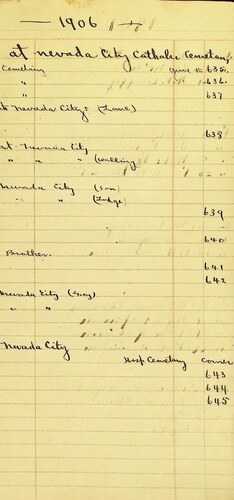 — 1906 —
at Nevada City Catholic Cemetary
Cemetary 635.
" 636.
" 637
at Nevada City: (Lane)
638
at Nevada City
" " "
Nevada City (Son)
" " (Lodge)
639
640
Brother.
641
642
Nevada City (Gray)
" "
Nevada City
Hosp Cemetary Corner
643
644
645